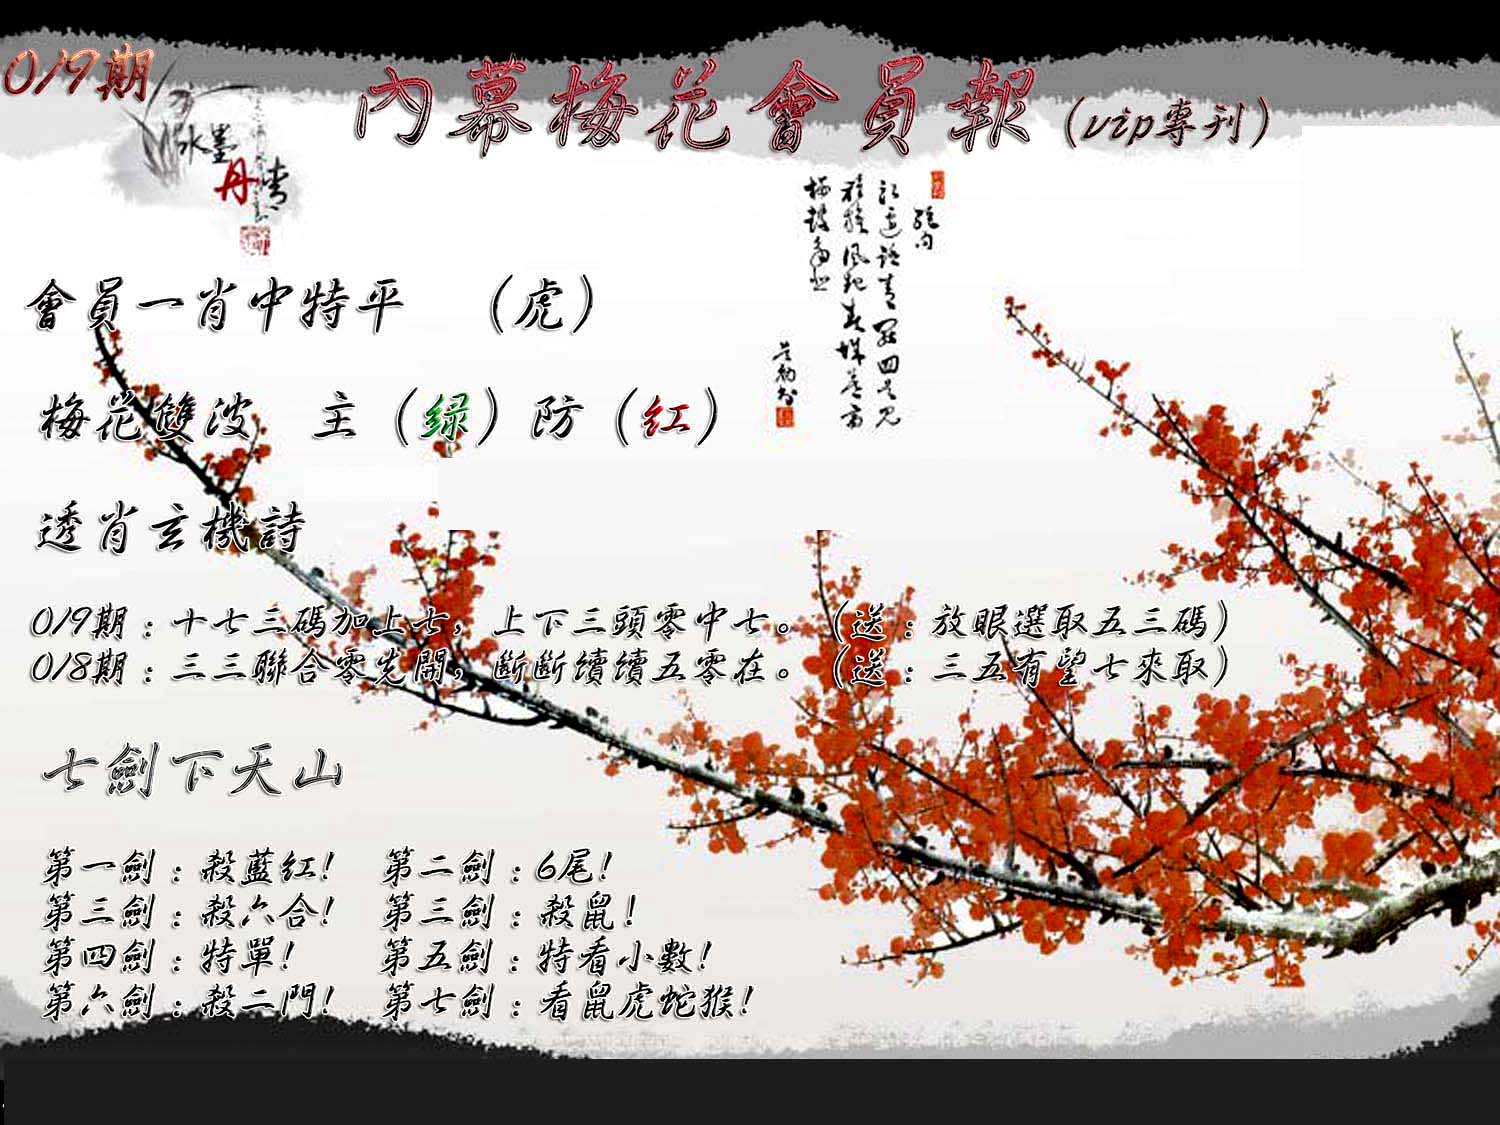 019期
內幕梅花會員報（vip專刊）
水墨
丹青
會員一肖中特平　（虎）
梅花雙波　主（绿）防（红）
透肖玄機詩
019期：十七三碼加上七，上下三頭零中七。（送：放眼選取五三碼）
018期：三三聯合零先開，斷斷續續五零在。（送：三五有望七來取）
七劍下天山
第一劍：殺藍紅！　第二劍：6尾！
第三劍：殺六合！　第三劍：殺鼠！
第四劍：特單！　第五劍：特看小數！
第六劍：殺二門！　第七劍：看鼠虎蛇猴！